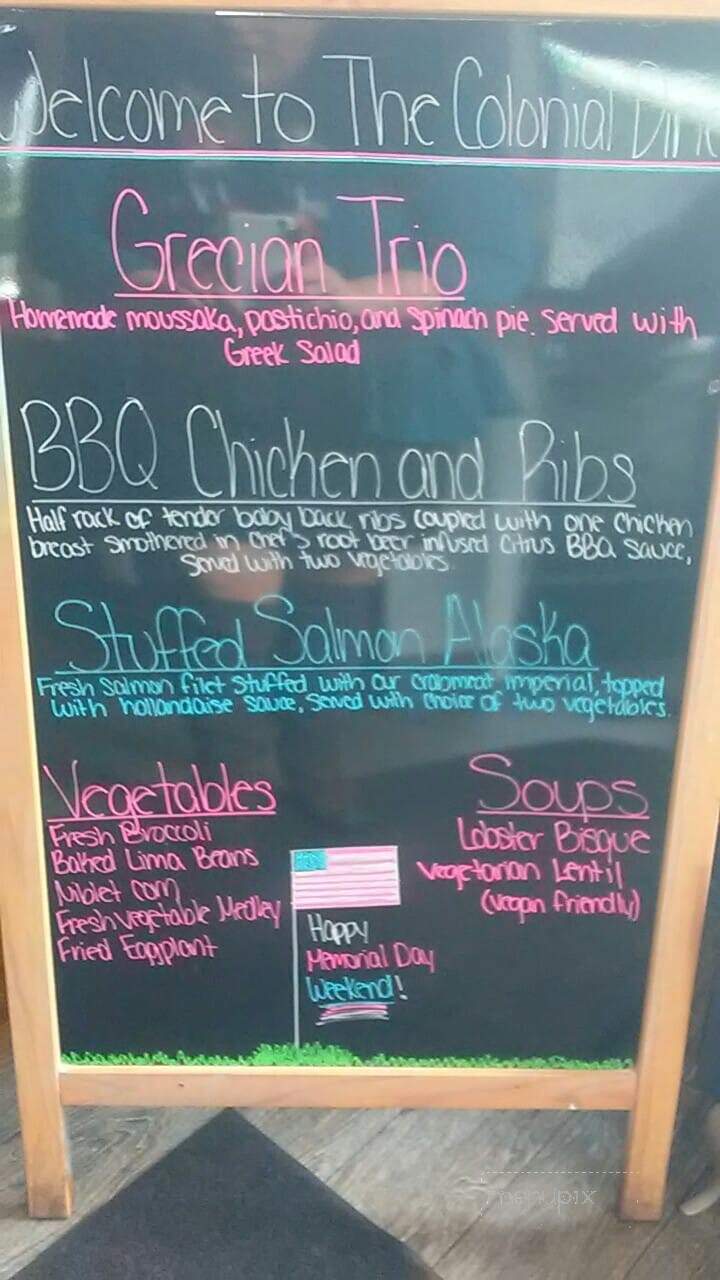 Welcome to The Colonial Din
Grecian Trio
Homemade moussaka, pastichio, and spinach pie. Served with
Greek Salad
BBQ Chicken and Ribs
Half rack of tender baby back ribs coupled with one chicken
breast smothered in chef's root beer infused Citrus BBQ Sauce,
Served with two vegetables.
Stuffed Salmon Alaska
Fresh Salmon filet Stuffed with our crabmeat imperial, topped
with hollandaise sauce, Served with choice of two vegetables.
Vegetables
Fresh Broccoli
Baked Lima Beans
Niblet corn
Fresh Vegetable Medley
Fried Eggplant
Soups
Lobster Bisque
Vegetarian Lentil
(vegan friendly)
Happy
Memorial Day
Weekend!
menupix